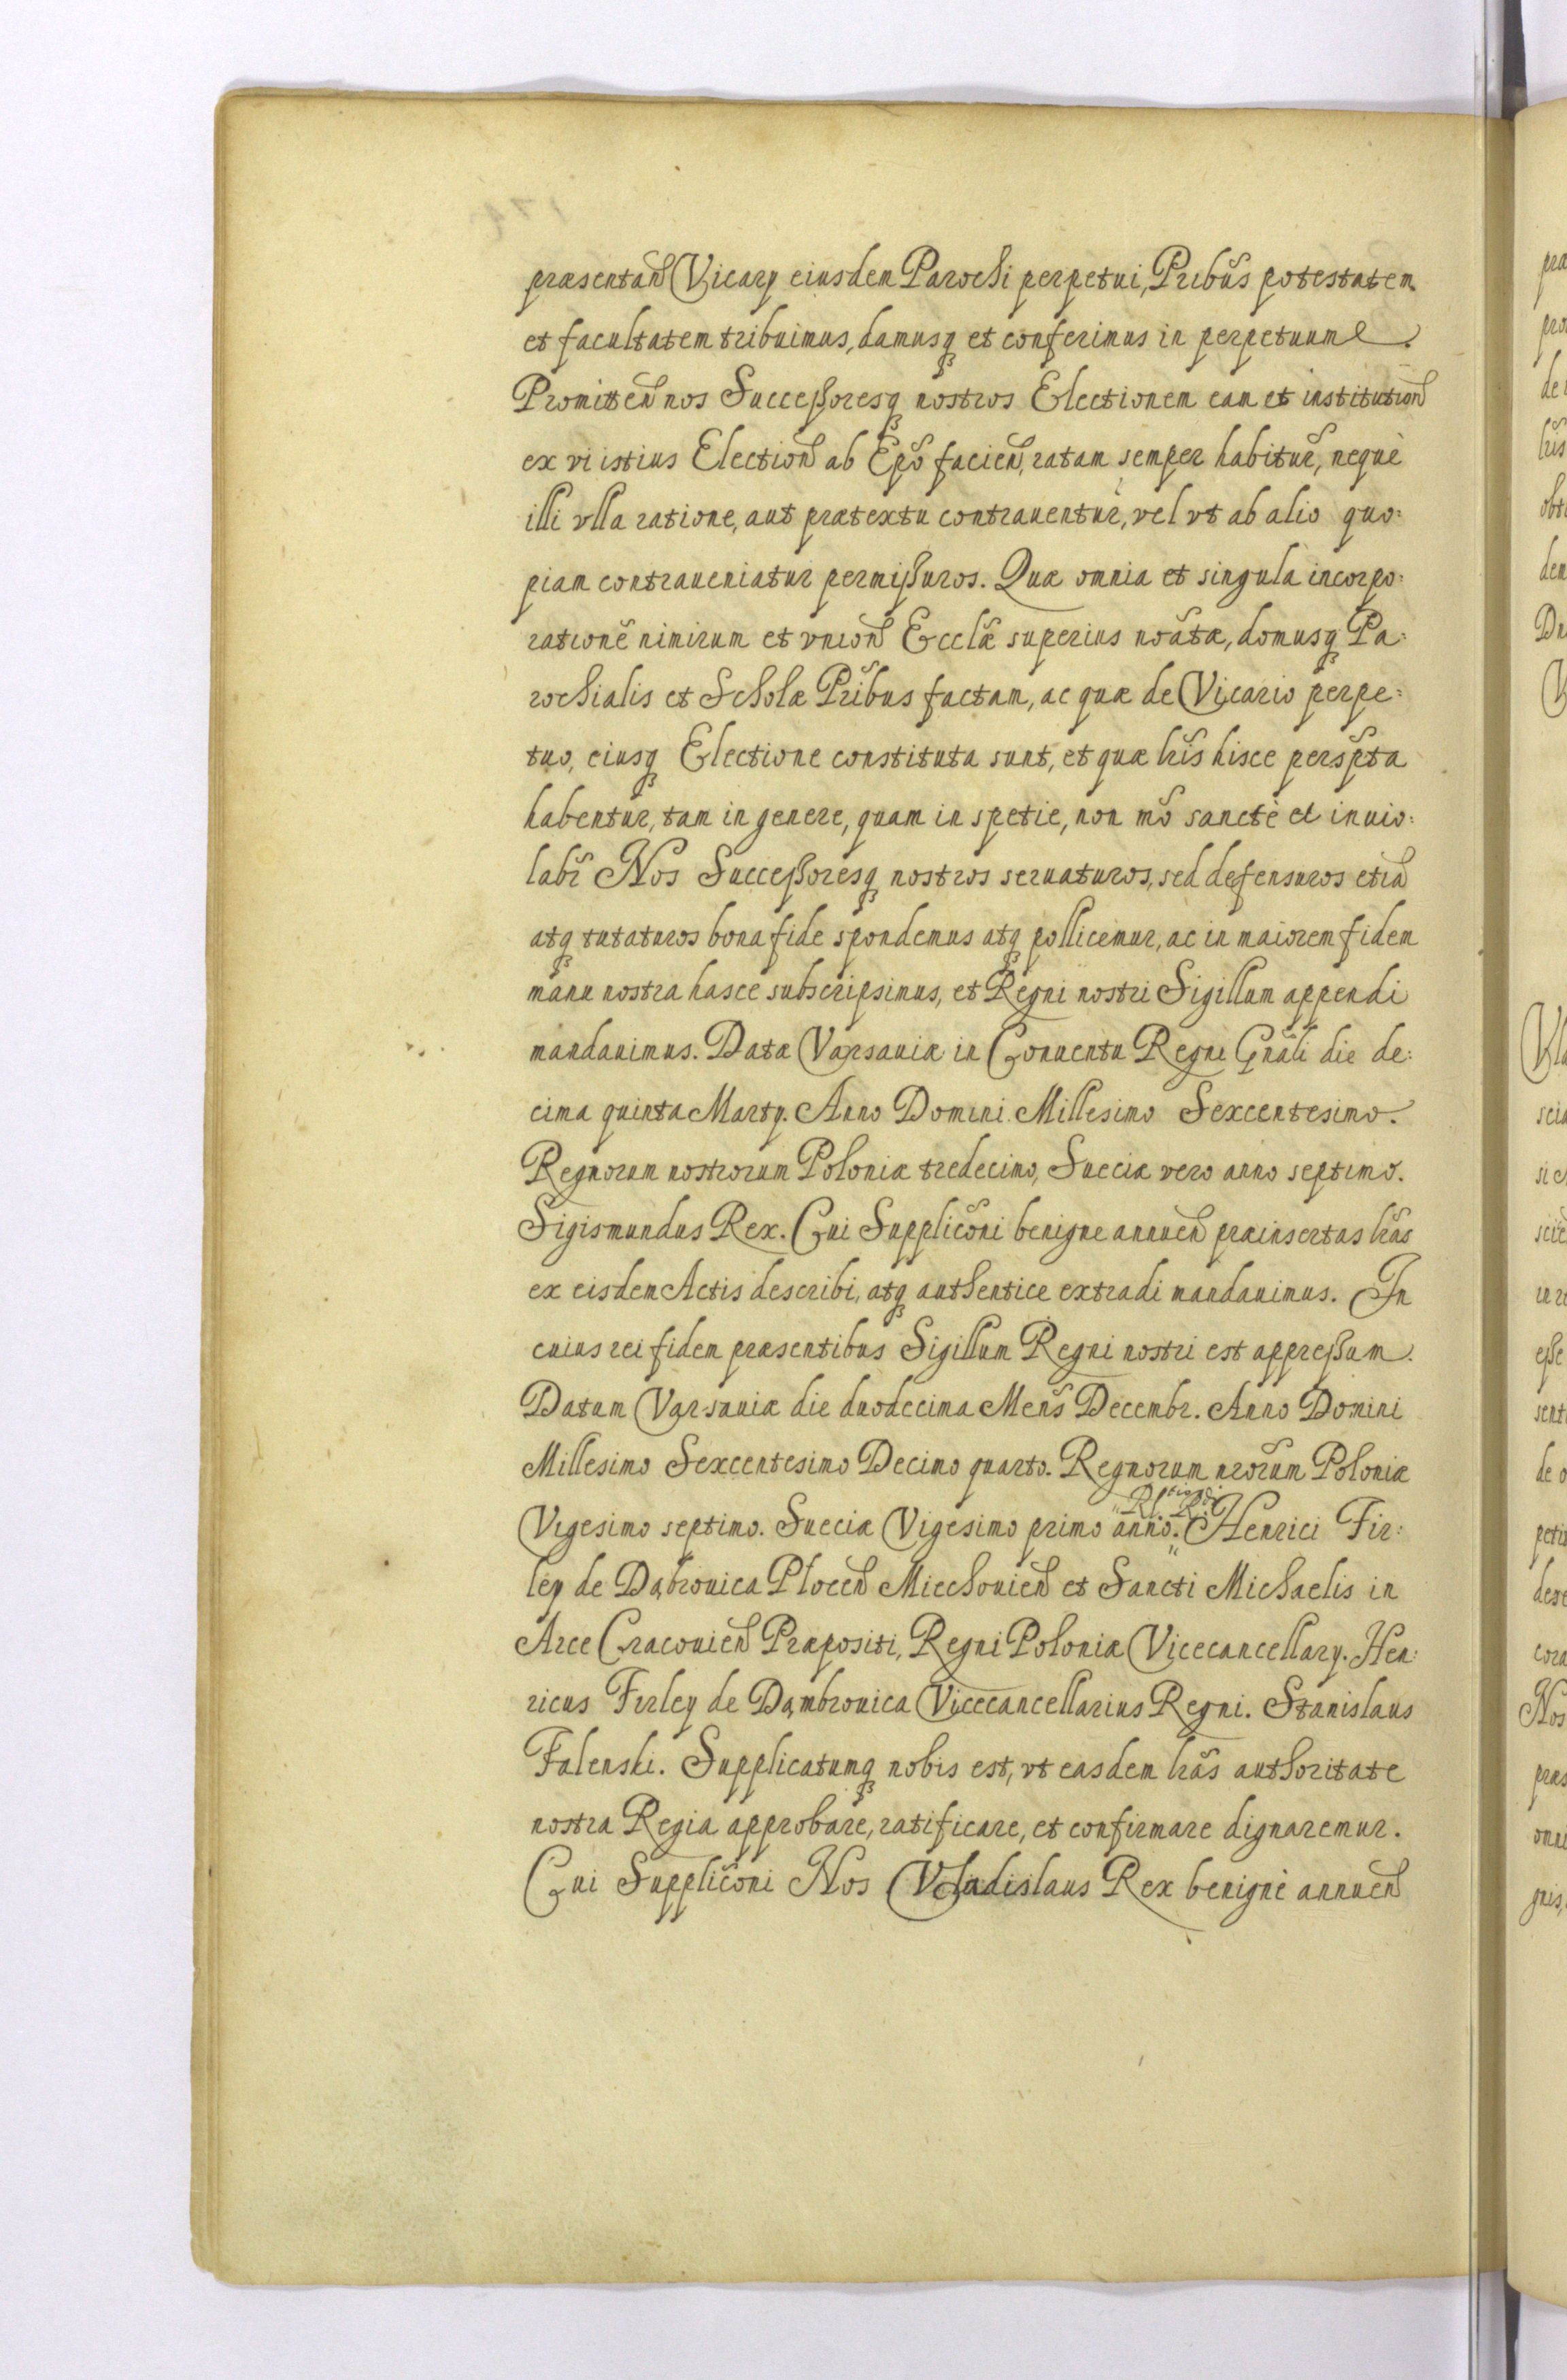 præsentan̄ Vicary eiusdem Parochi perpetui, Pribūs potestatem
et facultatem tribuimus, damusq₃ et conferimus in perpetuum.
Promitten̄ nos Successoresq₃ nostros Electionem eam et institution̄
ex vi istius Election̄ ab Ep̄o facien̄, ratam semper habitur̄, nequè
illi vlla ratione, aut prætextu contrauentur̄, vel vt ab alio quo:
piam contraueniatur permissuros. Quæ omnia et singula incorpo:
rationē nimirum et vnion̄ Eccl̄æ superius noātæ, domusq₃ Pa:
rochialis et Scholæ Pr̄ibus factam, ac quæ de Vicario perpe:
tuo, eiusq₃ Electione constituta sunt, et quæ lr̄is hisce pers̄pta
habentur, tam in genere, quam in spetie, non mō sanctè et inuio:
labr̄ Nos Successoresq₃ nostros seruaturos, sed defensuros etiā
atq₃ tutaturos bona fide spondemus atq₃ pollicemur, ac in maiorem fidem
manu nostra hasce subscripsimus, et Regni nostri Sigillum appendi
mandauimus. Datæ Varsauiæ in Conuentu Regni Gn̄ali die de:
cima quinta Marty. Anno Domini Millesimo Sexcentesimo.
Regnorum nostrorum Poloniæ tredecimo, Sueciæ vero anno septimo.
Sigismundus Rex. Cui Supplicōni benigne annuen̄ præinsertas lr̄as
ex eisdem Actis describi, atq₃ authentice extradi mandauimus. In
cuius rei fidem præsentibus Sigillum Regni nostri est appressum.
Datum Varsauiæ die duodecima Mens̄ Decembr. Anno Domini
Millesimo Sexcentesimo Decimo quarto. Regnorum nrōrum Poloniæ
Vigesimo septimo. Sueciæ Vigesimo primo anno. Henrici Fir:
ley de Dąbrouica Plocen̄ Miechouien̄ et Sancti Michaelis in
Arce Cracouien̄ Præpositi, Regni Poloniæ Vicecancellary. Hen:
ricus Firley de Dąmbrouica Vicecancellarius Regni. Stanislaus
Falenski. Supplicatumq₃ nobis est, vt easdem lr̄as authoritate
nostra Regia approbare, ratificare, et confirmare dignaremur.
Cui Supplicōni Nos Vladislaus Rex benignè annuen̄